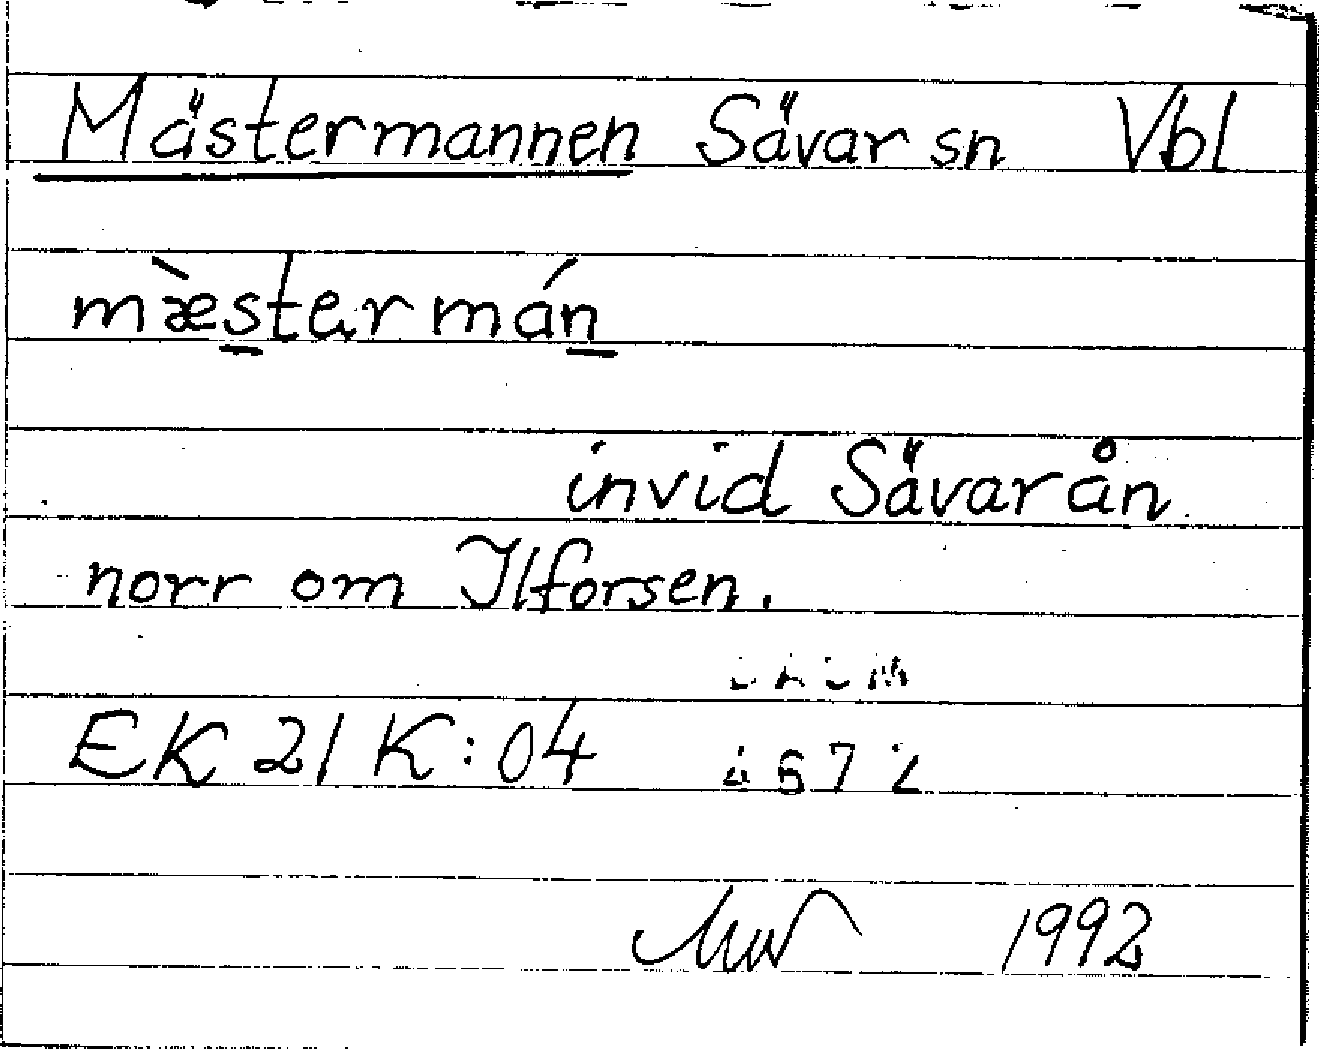 Mästermannen Sävar sn Vbl
mæ̀stermán
invid Sävarån
norr om Ilforsen.
EK 21 K:04
1992